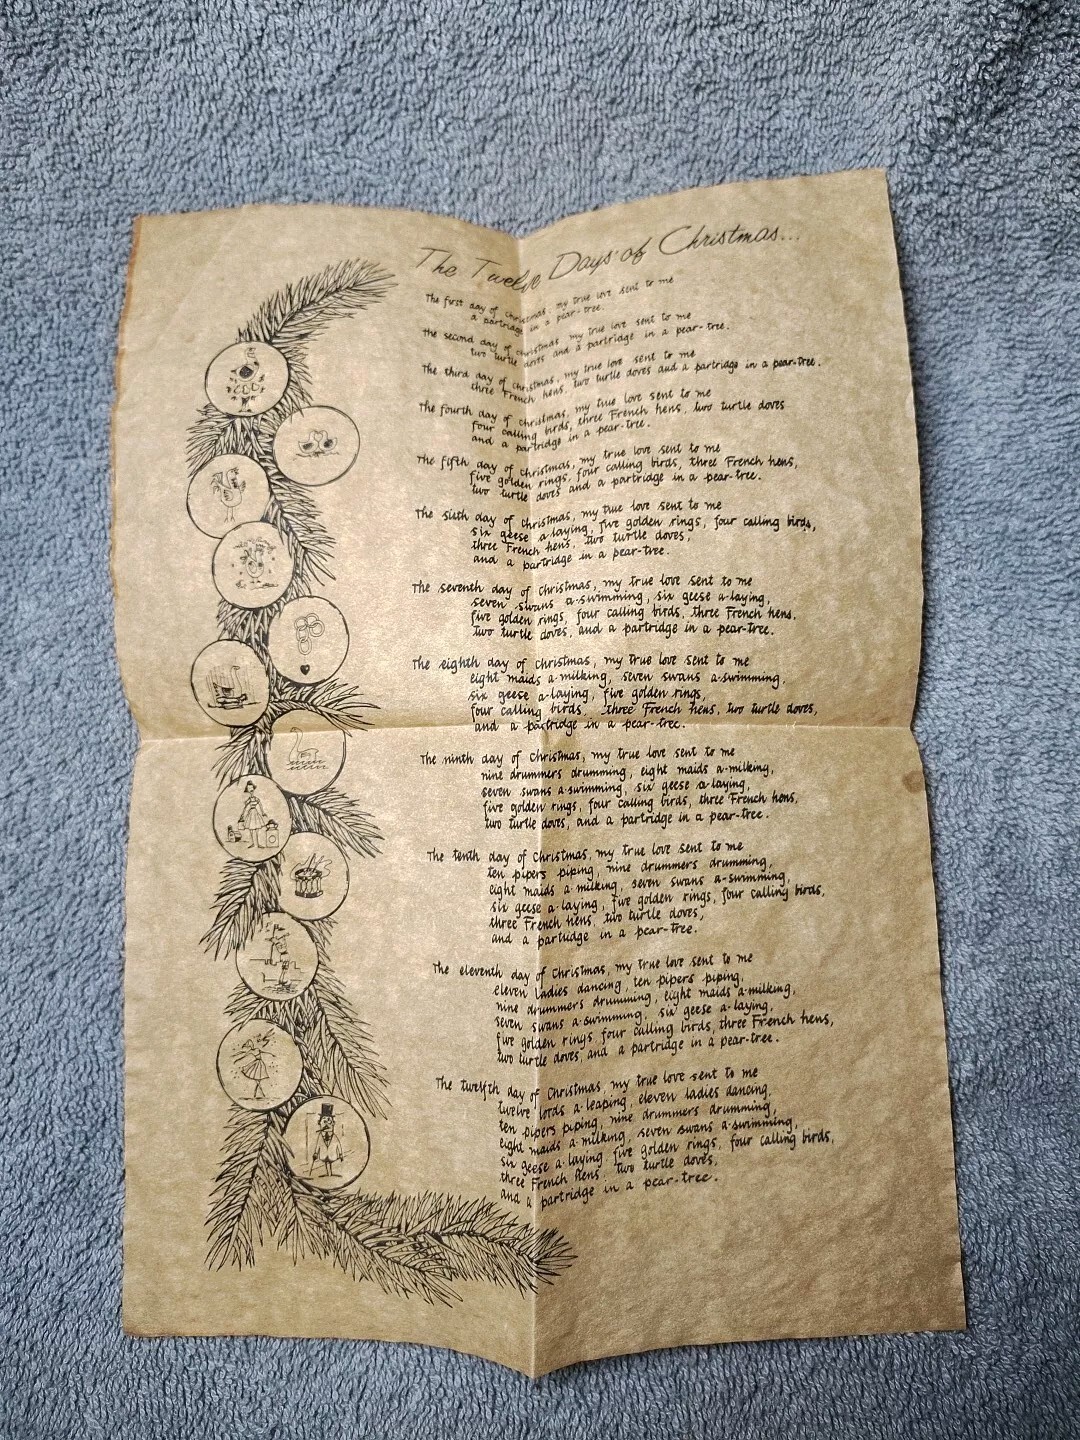 The Twelve Days of Christmas...
The first day of Christmas, my true love sent to me
a partridge in a pear-tree.
The second day of Christmas, my true love sent to me
two turtle doves and a partridge in a pear-tree.
The third day of Christmas, my true love sent to me
three French hens, two turtle doves and a partridge in a pear-tree.
The fourth day of Christmas, my true love sent to me
four calling birds, three French hens, two turtle doves
and a partridge in a pear-tree.
The fifth day of Christmas, my true love sent to me
five golden rings, four calling birds, three French hens,
two turtle doves and a partridge in a pear-tree.
The sixth day of Christmas, my true love sent to me
six geese a-laying, five golden rings, four calling birds,
three French hens, two turtle doves,
and a partridge in a pear-tree.
The seventh day of Christmas, my true love sent to me
seven swans a-swimming, six geese a-laying,
five golden rings, four calling birds, three French hens,
two turtle doves, and a partridge in a pear-tree.
The eighth day of Christmas, my true love sent to me
eight maids a-milking, seven swans a-swimming,
six geese a-laying, five golden rings,
four calling birds, three French hens, two turtle doves,
and a partridge in a pear-tree.
The ninth day of Christmas, my true love sent to me
nine drummers drumming, eight maids a-milking,
seven swans a-swimming, six geese a-laying,
five golden rings, four calling birds, three French hens,
two turtle doves, and a partridge in a pear-tree.
The tenth day of Christmas, my true love sent to me
ten pipers piping, nine drummers drumming,
eight maids a-milking, seven swans a-swimming,
six geese a-laying, five golden rings, four calling birds,
three French hens, two turtle doves,
and a partridge in a pear-tree.
The eleventh day of Christmas, my true love sent to me
eleven ladies dancing, ten pipers piping,
nine drummers drumming, eight maids a-milking,
seven swans a-swimming, six geese a-laying,
five golden rings, four calling birds, three French hens,
two turtle doves, and a partridge in a pear-tree.
The twelfth day of Christmas, my true love sent to me
twelve lords a-leaping, eleven ladies dancing,
ten pipers piping, nine drummers drumming,
eight maids a-milking, seven swans a-swimming,
six geese a-laying, five golden rings, four calling birds,
three French hens, two turtle doves,
and a partridge in a pear-tree.